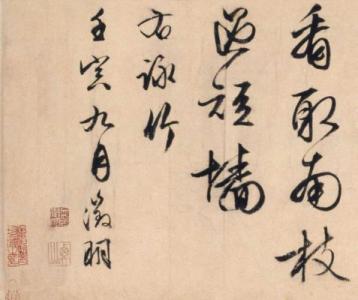 看取南枝
過短墻
右詠竹
壬寅九月徵明